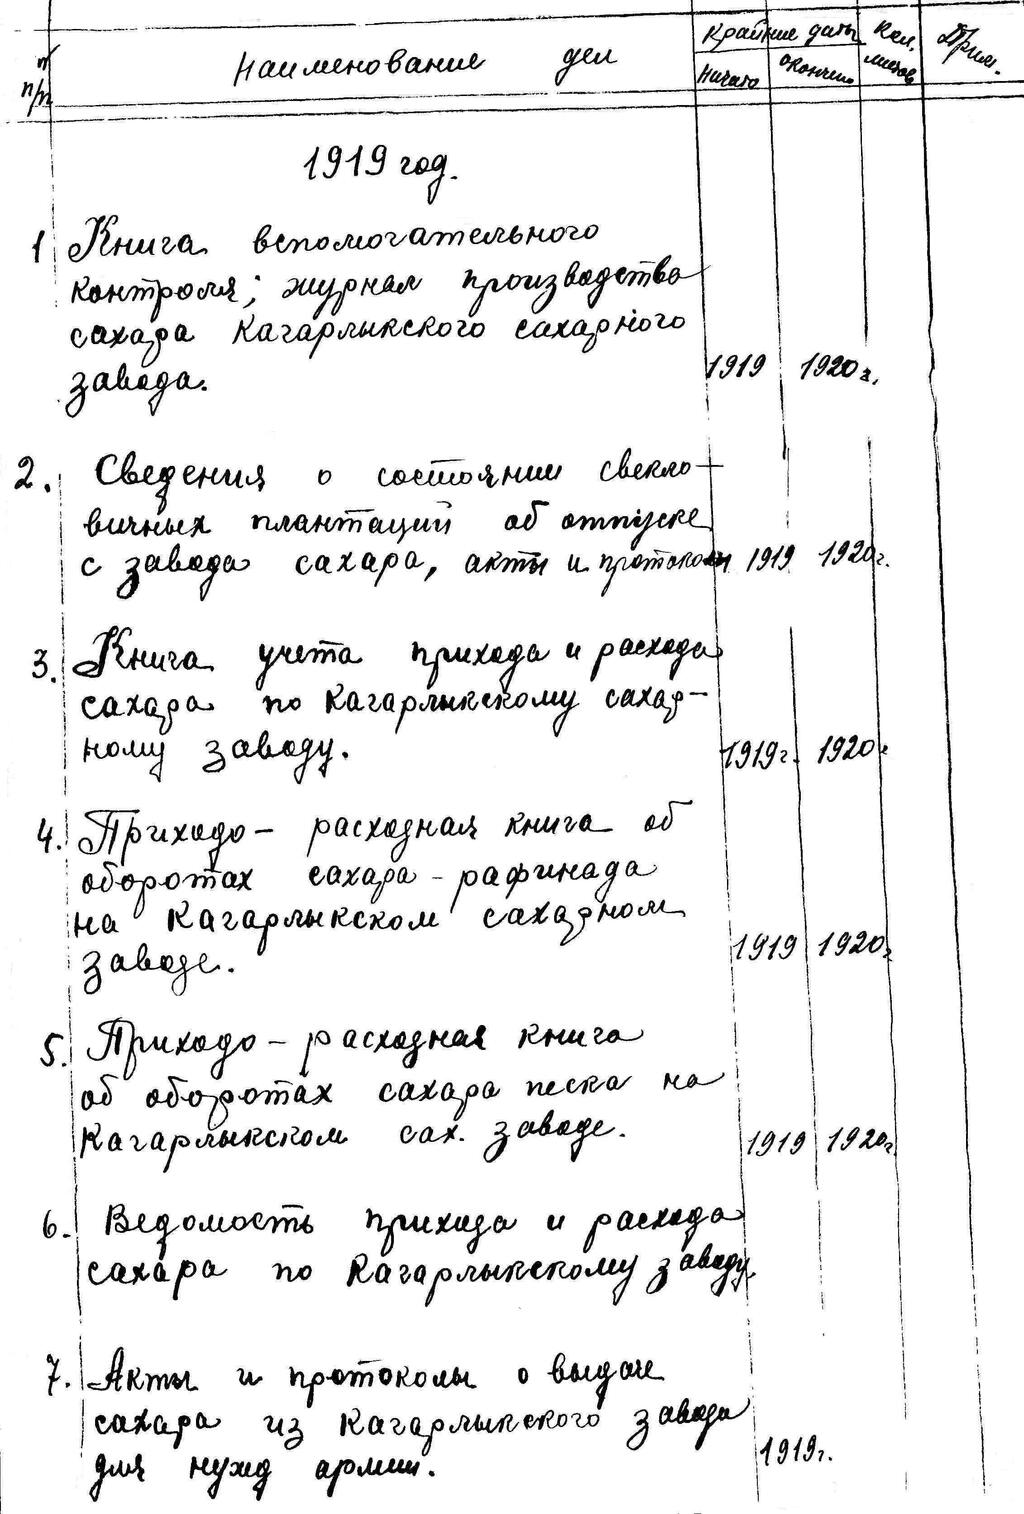 п/п Наименование дел Крайние даты Кол. листов Прим.
Начато окончено
1919 год.
1 Книга вспомогательного
контроля; журнал производства
сахара Кагарлыкского сахарного
завода. 1919 1920 г.
2. Сведения о состоянии свекло-
вичных плантаций об отпуске
с завода сахара, акты и протоколы 1919 1920 г.
3. Книга учета прихода и расхода
сахара по Кагарлыкскому сахар-
ному заводу. 1919 г. 1920 г
4. Приходо-расходная книга об
оборотах сахара-рафинада
на Кагарлыкском сахарном
заводе. 1919 1920 г
5. Приходо-расходная книга
об оборотах сахара песка на
Кагарлыкском сах. заводе. 1919 1920 г
6. Ведомость прихода и расхода
сахара по Кагарлыкскому заводу.
7. Акты и протоколы о выдаче
сахара из Кагарлыкского завода
для нужд армии. 1919 г.